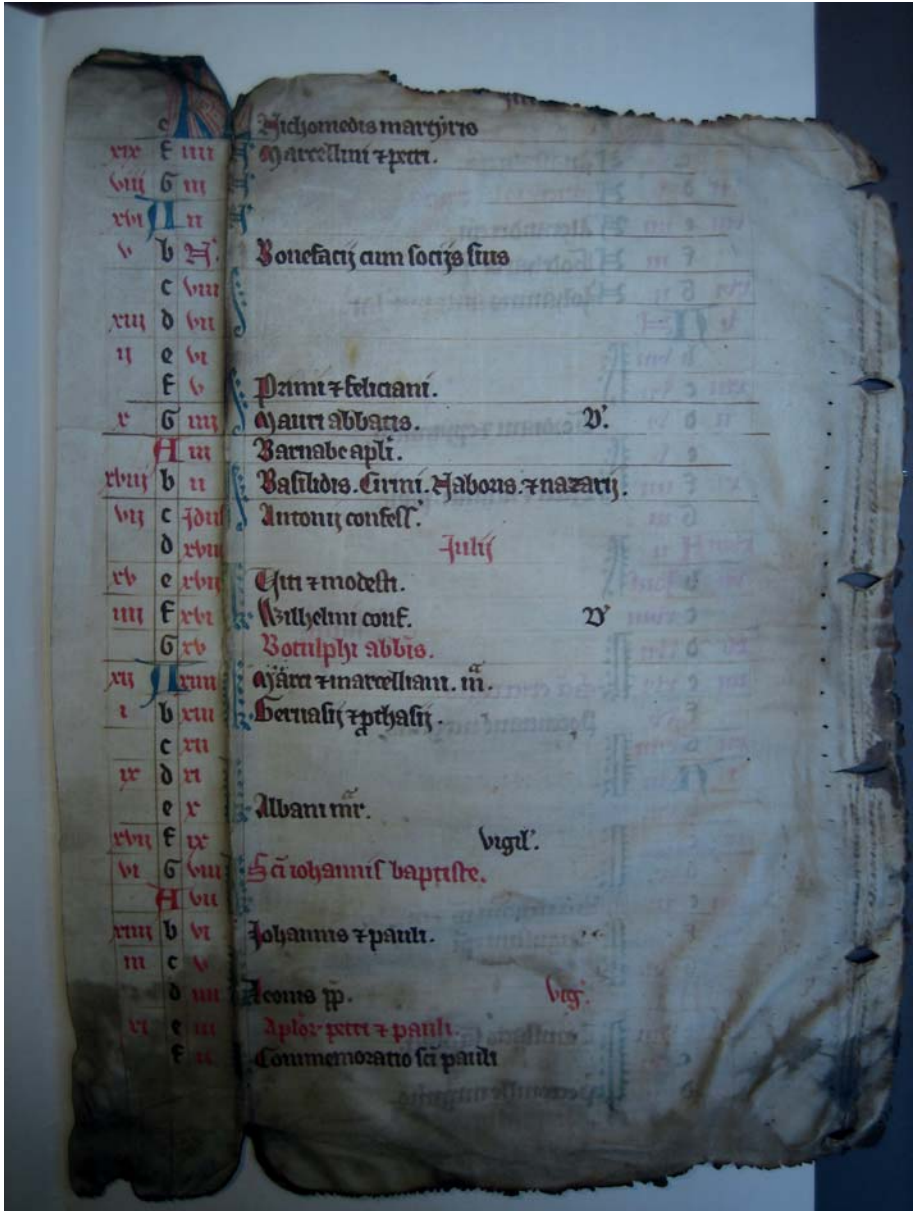 e K Nichomedis martyris
xix f iiii N Marcellini ⁊ petri.
viij G iii N
xvi A ii N
v b N Bonefacij cum socijs suis
c viii
xiii d vii
ij e vi
f v Primi ⁊ feliciani.
x G iiij Mauri abbatis. D'
A iii Barnabe apli.
xviij b ii Basilidis. Cirini. Naboris. ⁊ nazarij.
vij c jdus Antonij confess'.
d xviii Julij
xv e xvii Uiti ⁊ modesti.
iiij f xvi Wilhelmi conf. D'
G xv Botulphi abbis.
xij A xiiii Marci ⁊ marcelliani. m.
i b xiii Geruasij ⁊ pthasij.
c xii
ix d xi
e x Albani mr.
xvij f ix vigil'.
vi G viii Sci iohannis baptiste.
A vii
xiiij b vi Johannis ⁊ pauli.
iii c v
d iiii Leonis pp. vig'.
xi e iii Aplor petri ⁊ pauli.
f ii Commemoratio sci pauli